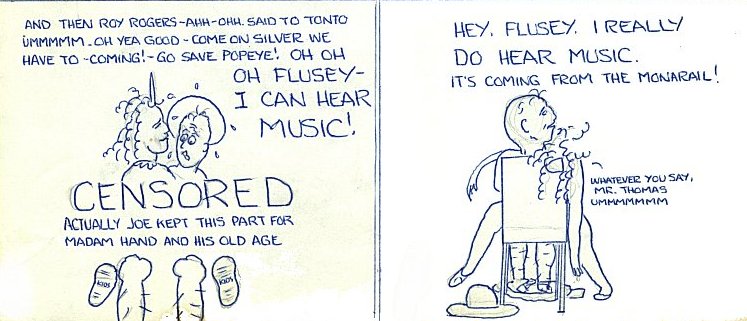 AND THEN ROY ROGERS-AHH-OHH. SAID TO TONTO
UMMMMM. OH YEA GOOD - COME ON SILVER WE
HAVE TO - COMING! - GO SAVE POPEYE! OH OH
OH FLUSEY-
I CAN HEAR
MUSIC!
CENSORED
ACTUALLY JOE KEPT THIS PART FOR
MADAM HAND AND HIS OLD AGE
KIDS
KIDS
HEY, FLUSEY. I REALLY
DO HEAR MUSIC.
IT'S COMING FROM THE MONARAIL!
WHATEVER YOU SAY,
MR. THOMAS
UMMMMMMM